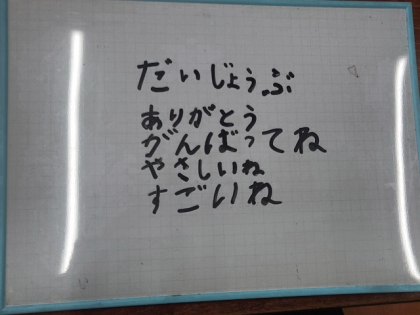 だいじょうぶ
ありがとう
がんばってね
やさしいね
すごいね